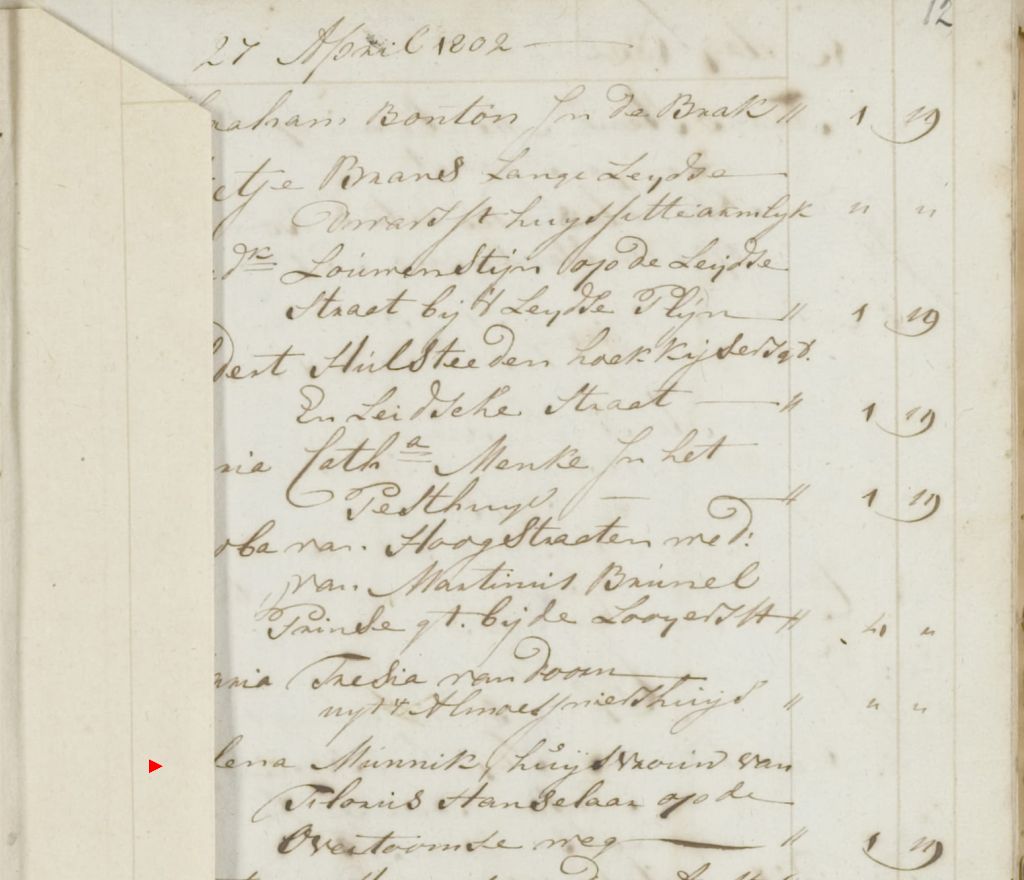 12
27 April 1802
raham Bonton In de Brak " 1 19
etje Brands Lange Leydse
Dwarsst huyssitteaarmlyk " "
dk Louwenstijn op de Leydse
straet bij 't Leydse Plijn " 1 19
dert Hulstee den hoek Kijsersgt.
En Leidsche Straat " 1 19
ria Catha Menke In het
Pesthuys " 1 19
oba van Hoogstraeten wed:
van Martinus Brunel
Prinse gt. bij de Looyersst " 4 "
aria Tresia van Doorn
uyt 't Almoessniershuijs " " "
lena Munnik, huijsvrouw van
Floris Hanselaar op de
Overtoomse weg " 1 19